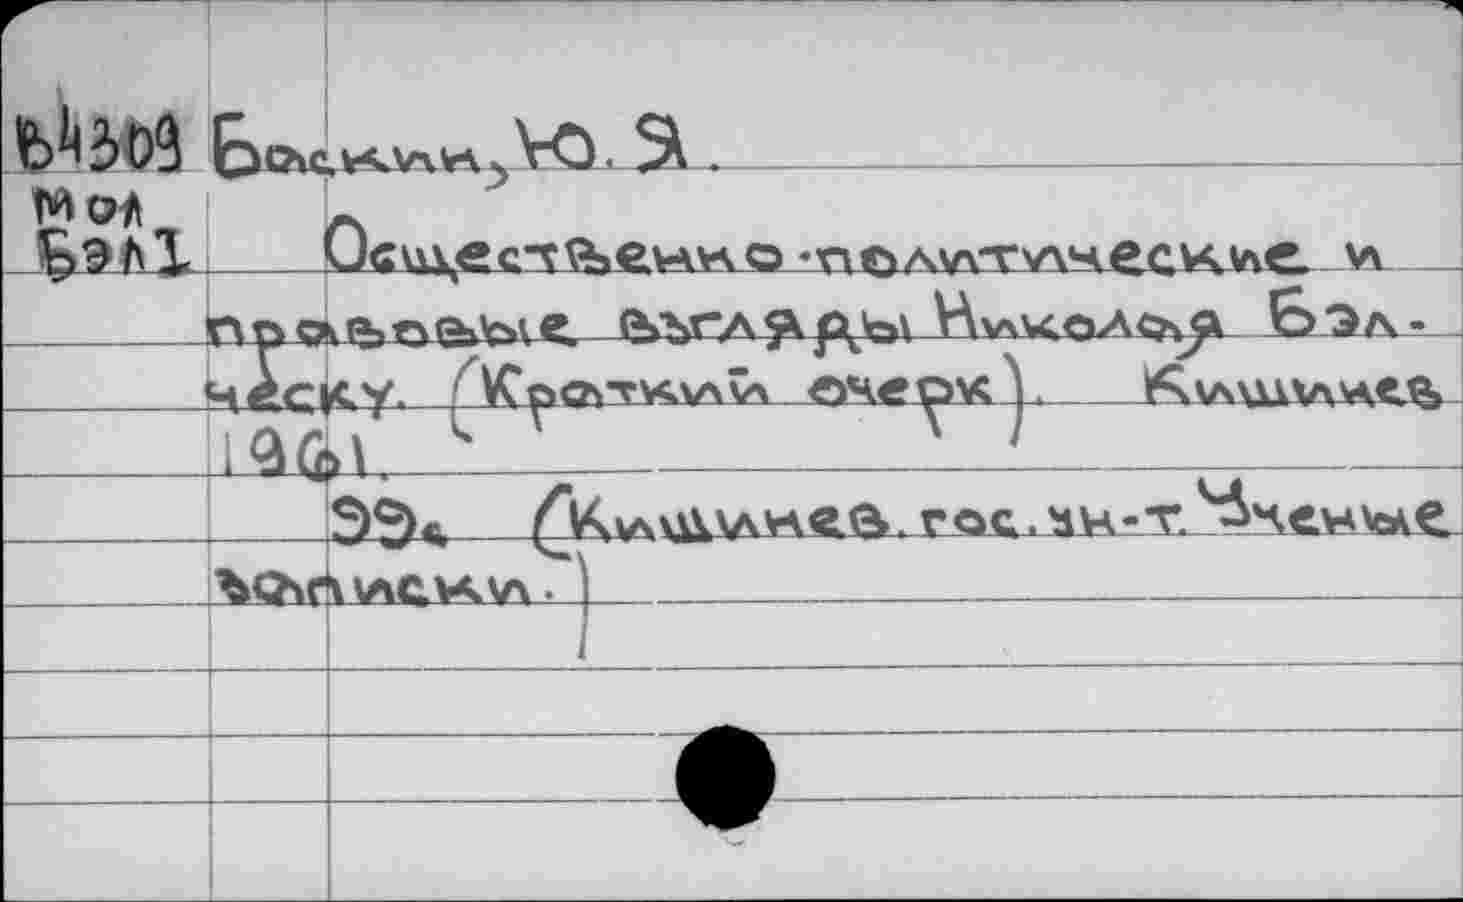 Баскин, Ю. Я.
мол
Бэл1 Общественно-политические и
правовые взгляды Николая Бэл-
ческу. (Краткий очерк). Кишинев,
1961.
99с. (Кишинев. гос. ун-т. Ученые
записки.)